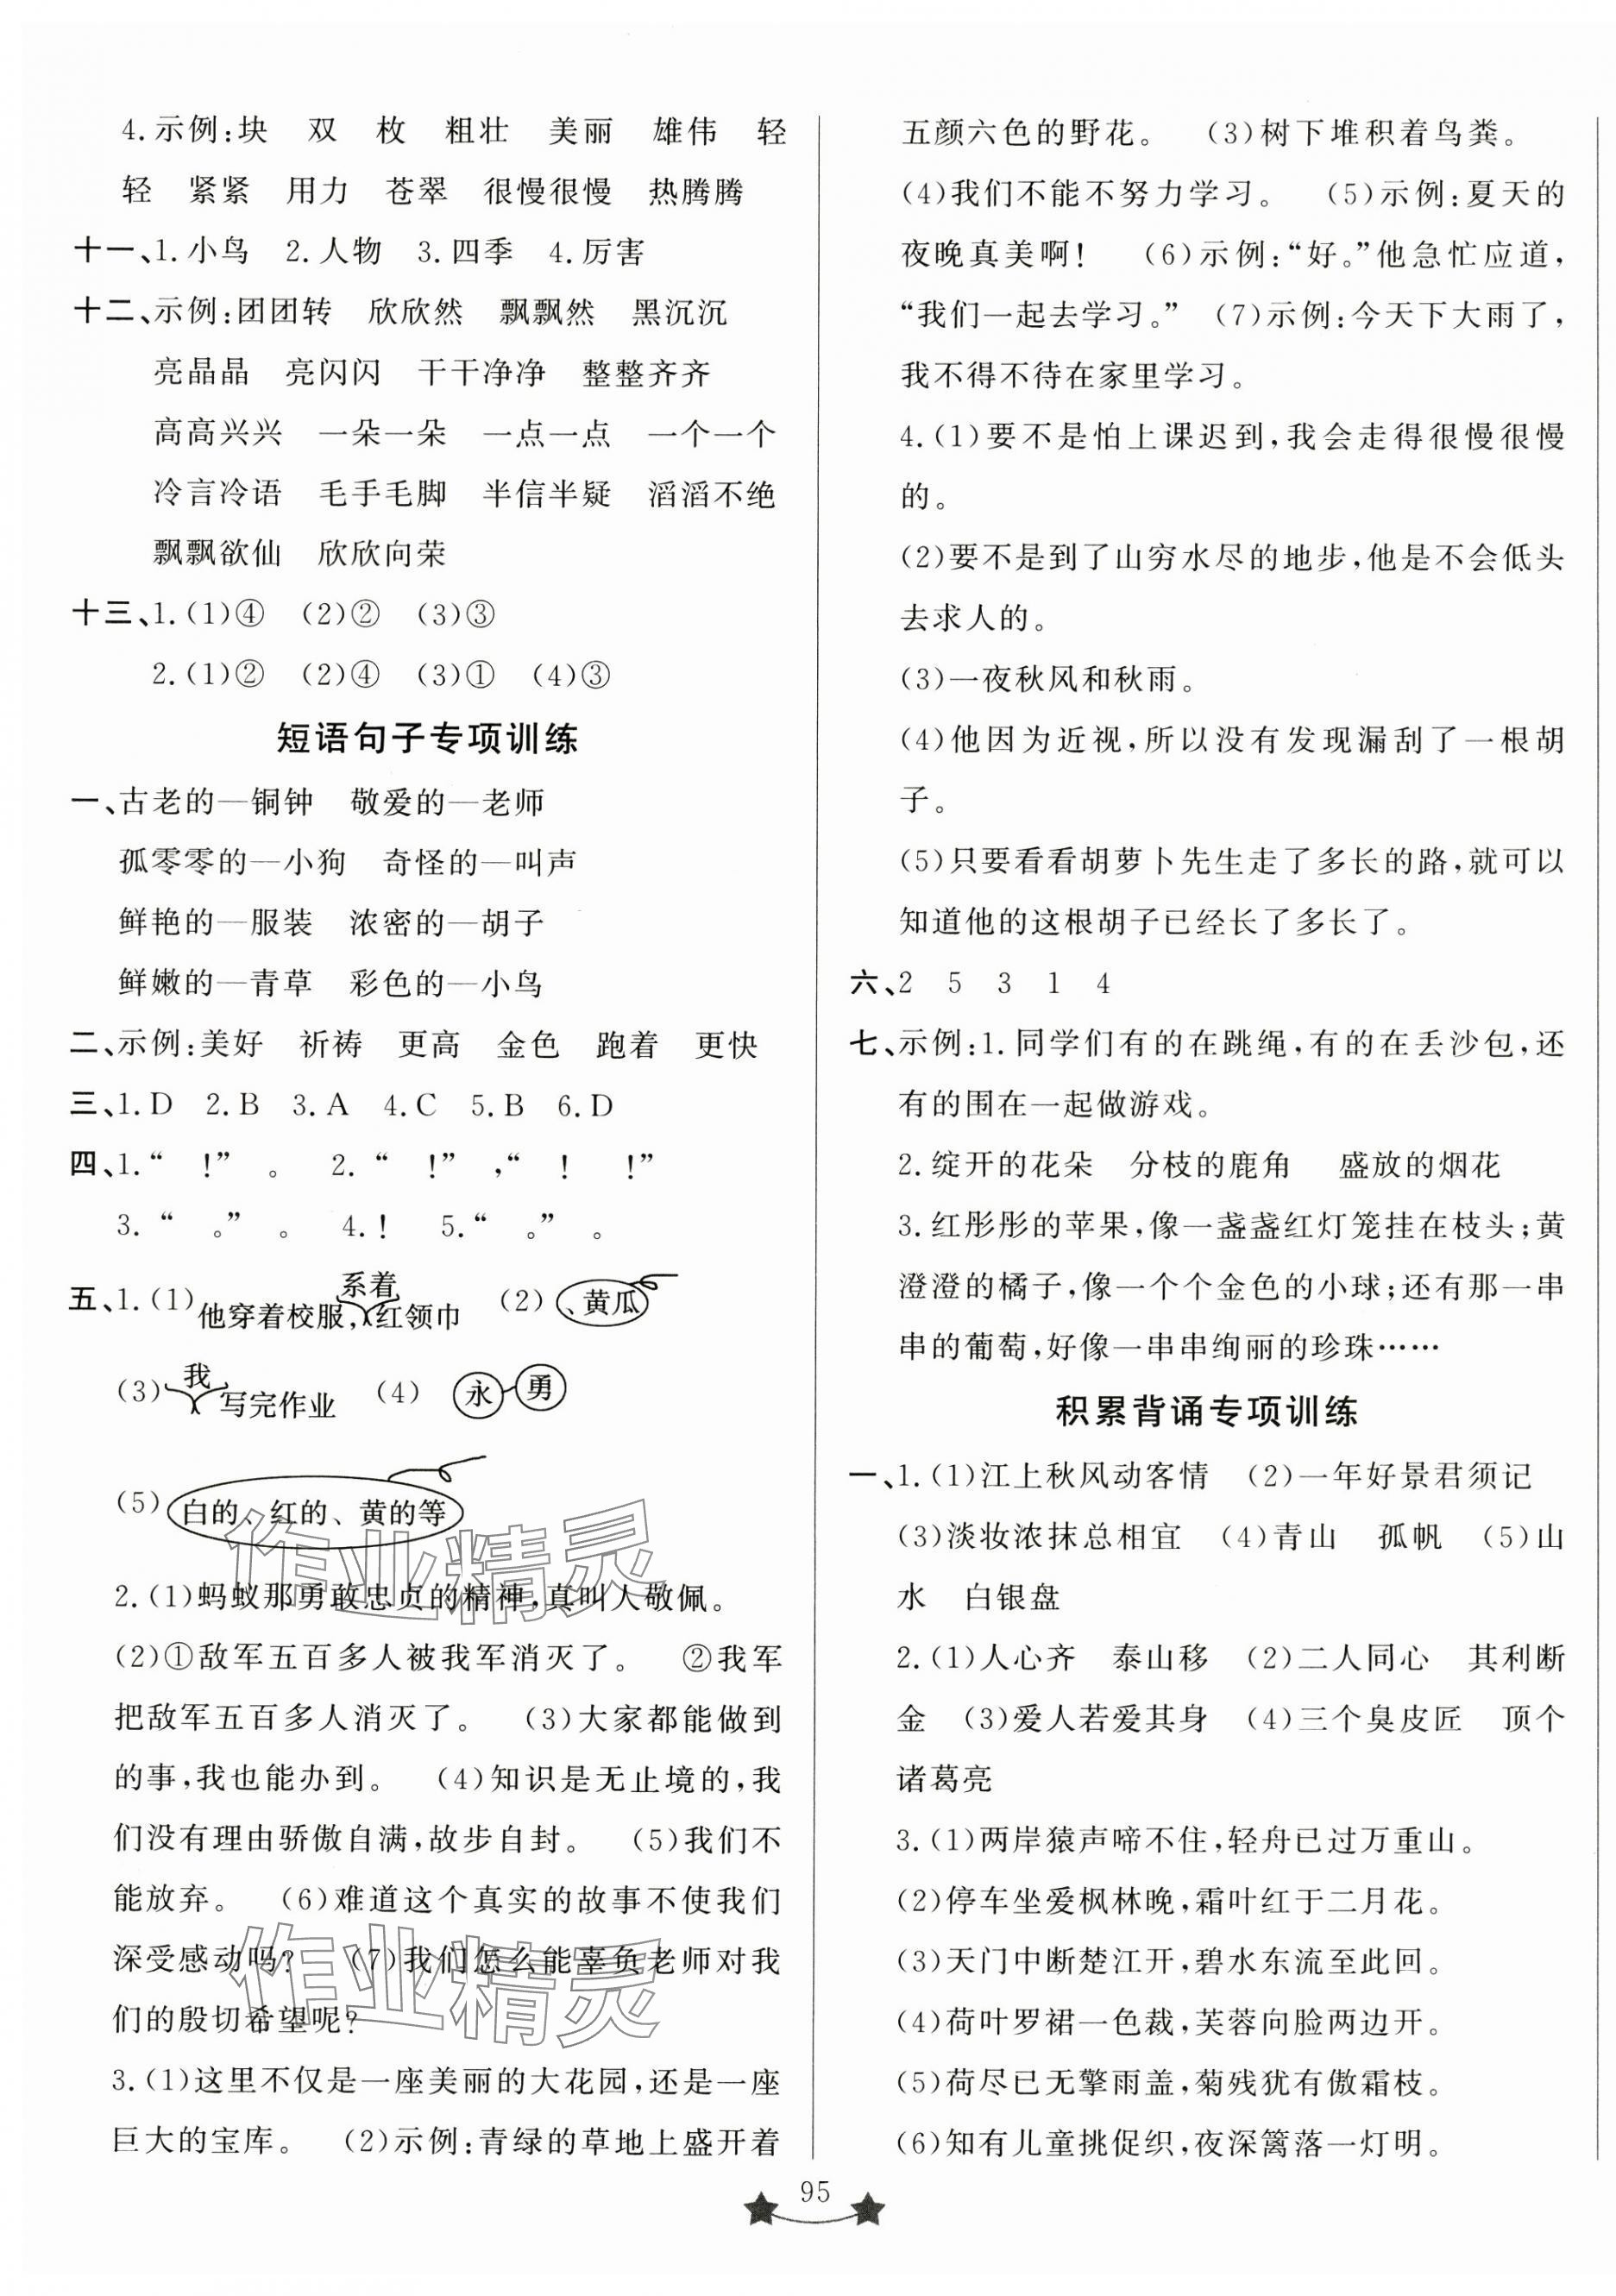 4.示例:块　双　枚　粗壮　美丽　雄伟　轻
轻　紧紧　用力　苍翠　很慢很慢　热腾腾
十一、1.小鸟　2.人物　3.四季　4.厉害
十二、示例:团团转　欣欣然　飘飘然　黑沉沉
亮晶晶　亮闪闪　干干净净　整整齐齐
高高兴兴　一朵一朵　一点一点　一个一个
冷言冷语　毛手毛脚　半信半疑　滔滔不绝
飘飘欲仙　欣欣向荣
十三、1.(1)④　(2)②　(3)③
2.(1)②　(2)④　(3)①　(4)③
短语句子专项训练
一、古老的—铜钟　敬爱的—老师
孤零零的—小狗　奇怪的—叫声
鲜艳的—服装　浓密的—胡子
鲜嫩的—青草　彩色的—小鸟
二、示例:美好　祈祷　更高　金色　跑着　更快
三、1.D　2.B　3.A　4.C　5.B　6.D
四、1.“　!”　。　2.“　!”　,“　!　!”
3.“　。”　。　4.!　5.“　。”　。
五、1.(1)他穿着校服,系着红领巾　(2)、黄瓜
(3)我写完作业　(4)永 勇
(5)白的、红的、黄的等
2.(1)蚂蚁那勇敢忠贞的精神,真叫人敬佩。
(2)①敌军五百多人被我军消灭了。　②我军
把敌军五百多人消灭了。　(3)大家都能做到
的事,我也能办到。　(4)知识是无止境的,我
们没有理由骄傲自满,故步自封。　(5)我们不
能放弃。　(6)难道这个真实的故事不使我们
深受感动吗?　(7)我们怎么能辜负老师对我
们的殷切希望呢?
3.(1)这里不仅是一座美丽的大花园,还是一座
巨大的宝库。　(2)示例:青绿的草地上盛开着
五颜六色的野花。　(3)树下堆积着鸟粪。
(4)我们不能不努力学习。　(5)示例:夏天的
夜晚真美啊!　(6)示例:“好。”他急忙应道,
“我们一起去学习。”　(7)示例:今天下大雨了,
我不得不待在家里学习。
4.(1)要不是怕上课迟到,我会走得很慢很慢
的。
(2)要不是到了山穷水尽的地步,他是不会低头
去求人的。
(3)一夜秋风和秋雨。
(4)他因为近视,所以没有发现漏刮了一根胡
子。
(5)只要看看胡萝卜先生走了多长的路,就可以
知道他的这根胡子已经长了多长了。
六、2　5　3　1　4
七、示例:1.同学们有的在跳绳,有的在丢沙包,还
有的围在一起做游戏。
2.绽开的花朵　分枝的鹿角　盛放的烟花
3.红彤彤的苹果,像一盏盏红灯笼挂在枝头;黄
澄澄的橘子,像一个个金色的小球;还有那一串
串的葡萄,好像一串串绚丽的珍珠……
积累背诵专项训练
一、1.(1)江上秋风动客情　(2)一年好景君须记
(3)淡妆浓抹总相宜　(4)青山　孤帆　(5)山
水　白银盘
2.(1)人心齐　泰山移　(2)二人同心　其利断
金　(3)爱人若爱其身　(4)三个臭皮匠　顶个
诸葛亮
3.(1)两岸猿声啼不住,轻舟已过万重山。
(2)停车坐爱枫林晚,霜叶红于二月花。
(3)天门中断楚江开,碧水东流至此回。
(4)荷叶罗裙一色裁,芙蓉向脸两边开。
(5)荷尽已无擎雨盖,菊残犹有傲霜枝。
(6)知有儿童挑促织,夜深篱落一灯明。
95
作业精灵
作业精灵